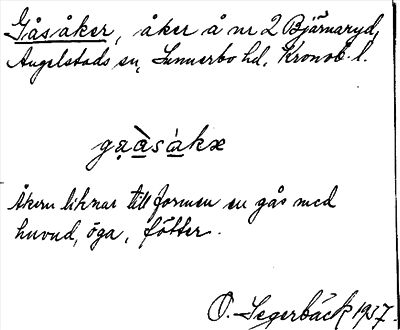 Gåsåker, åker å nr 2 Bjärnaryd,
Angelstads sn, Sunnerbo hd, Kronob. l.
gạå̱̀sàkx
Åkern liknar till formen en gås med
huvud, öga, fötter.
O. Segerbäck 1937.